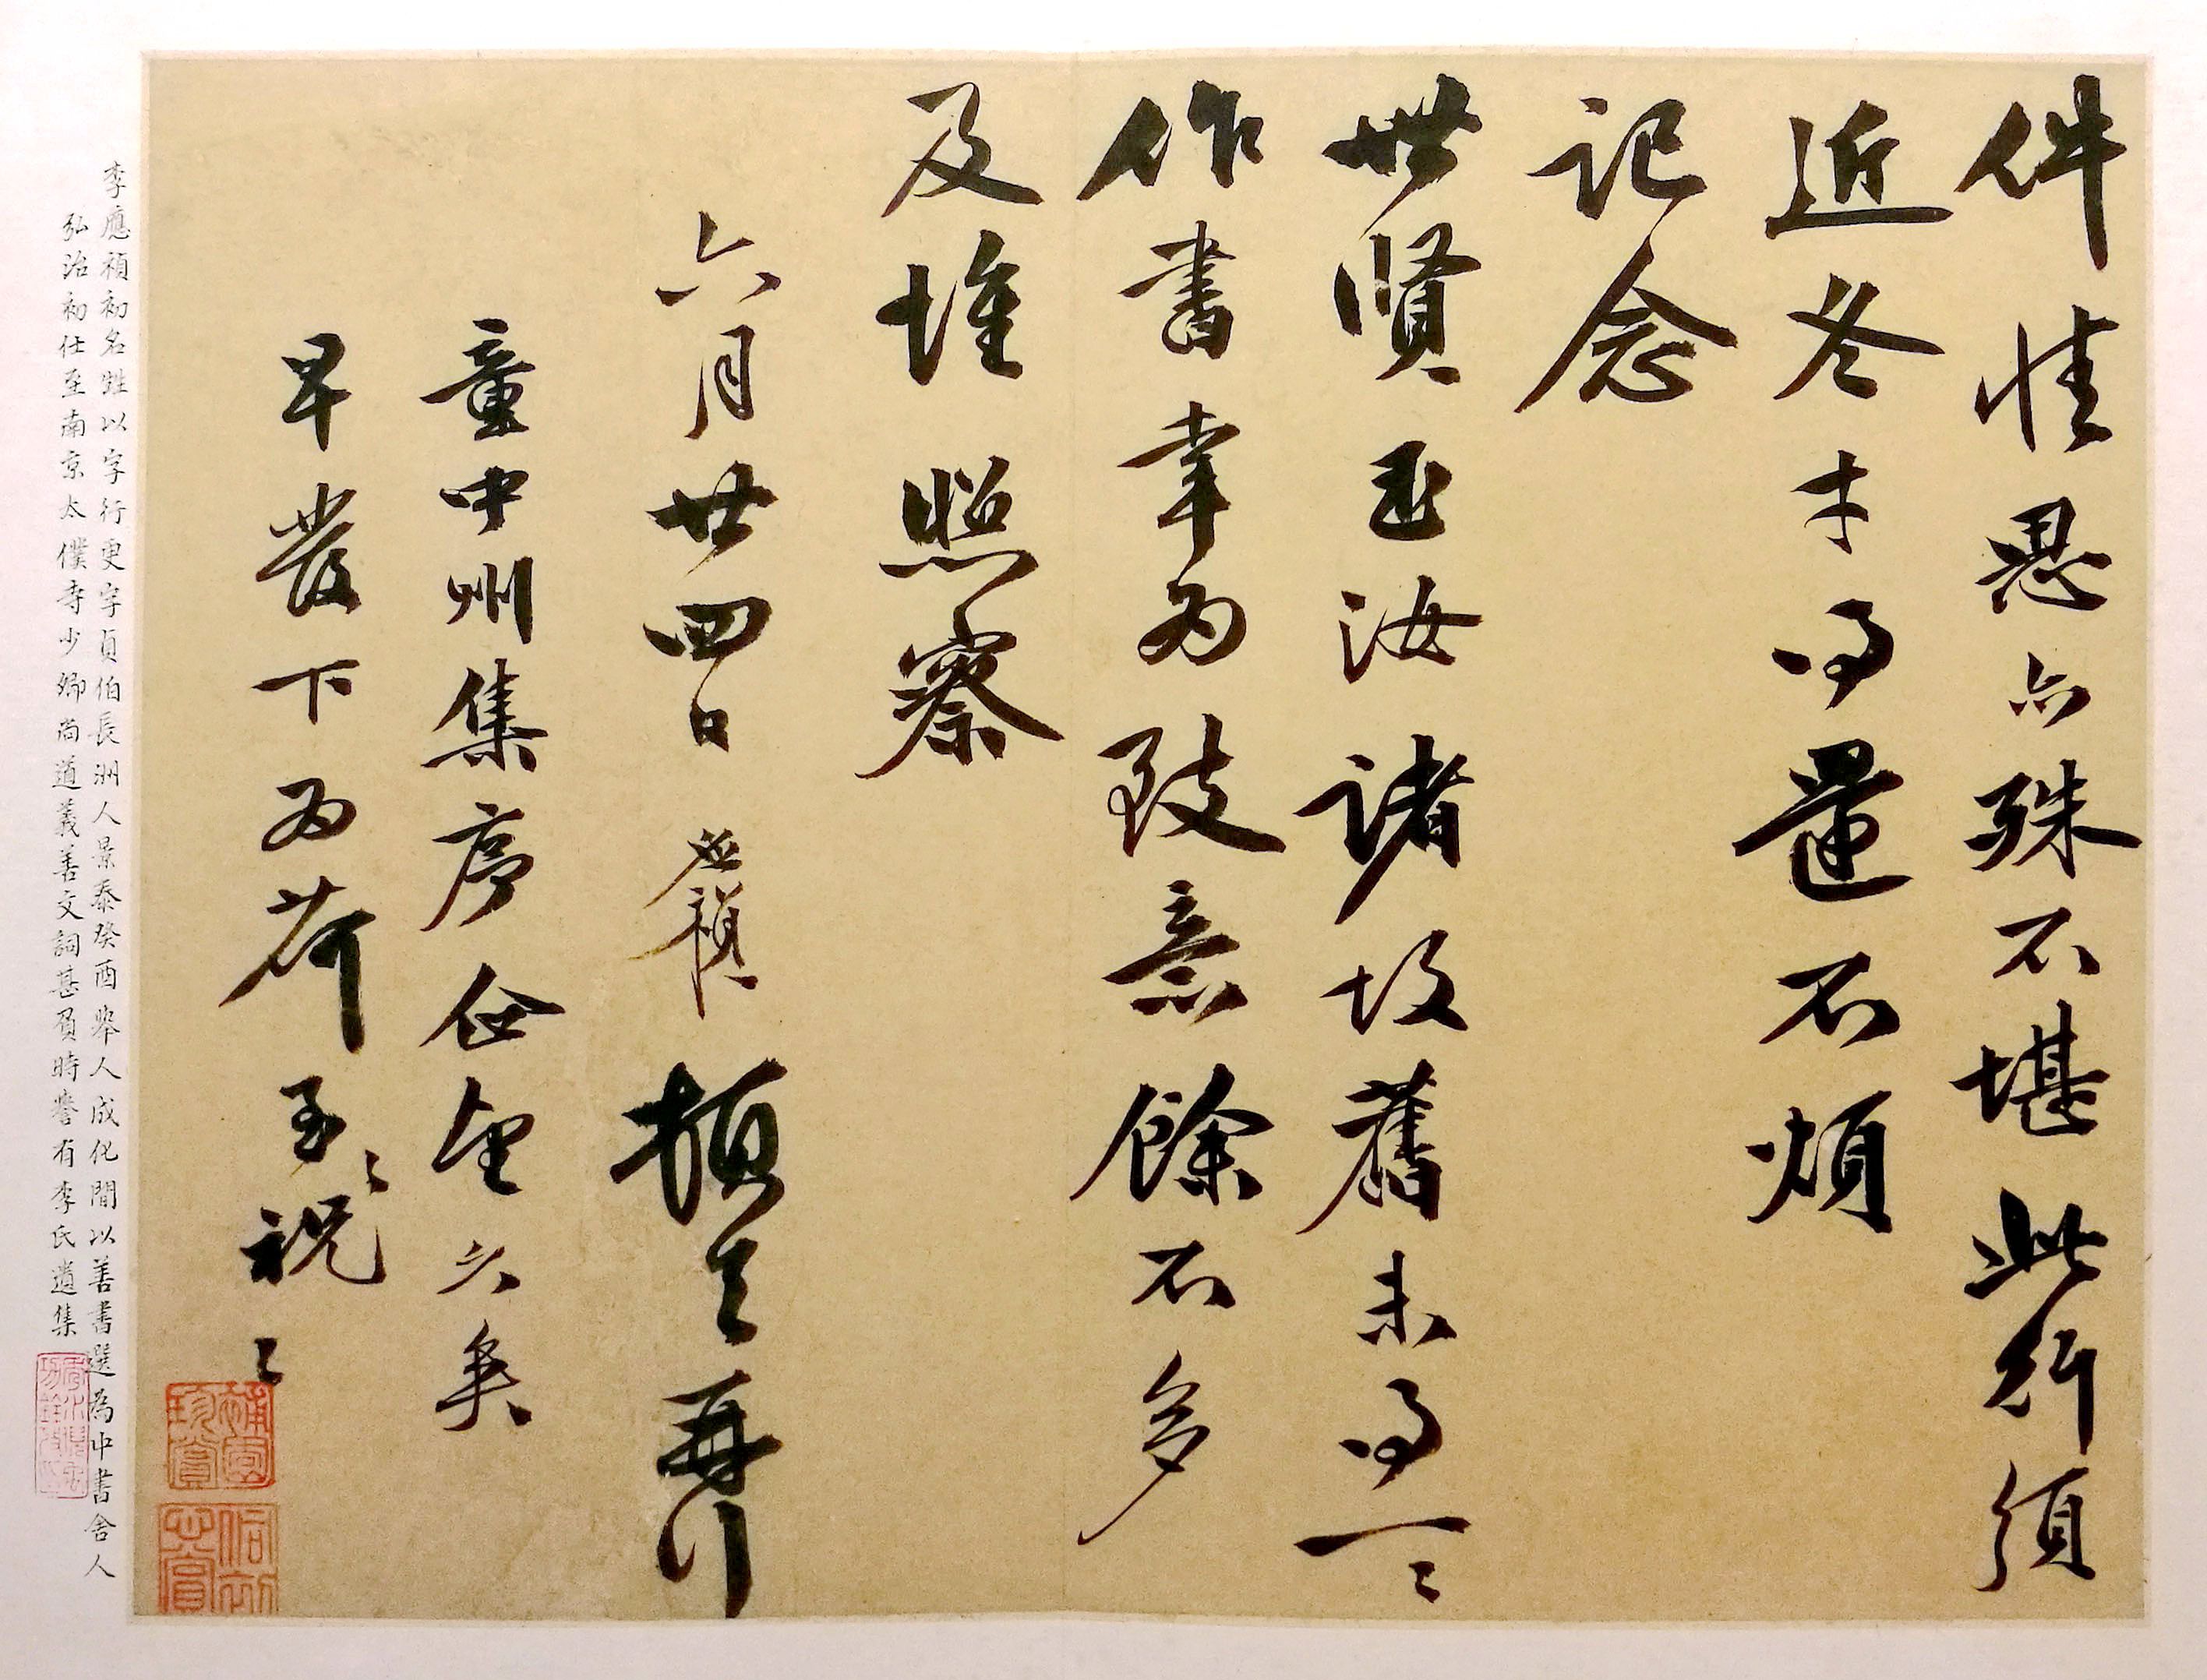 件情思亦殊不堪此行須
近冬才得還不煩
記念
世賢玉汝諸故舊未得一一
作書幸為致意餘不多
及惟照察
六月廿四日應禎頓首再拜
童中州集序企望久矣
早發下為荷至祝至祝
李應禎初名甡以字行更字貞伯長洲人景泰癸酉舉人成化間以善書選為中書舍人
弘治初仕至南京太僕寺少卿尚道義善文詞甚負時譽有李氏遺集